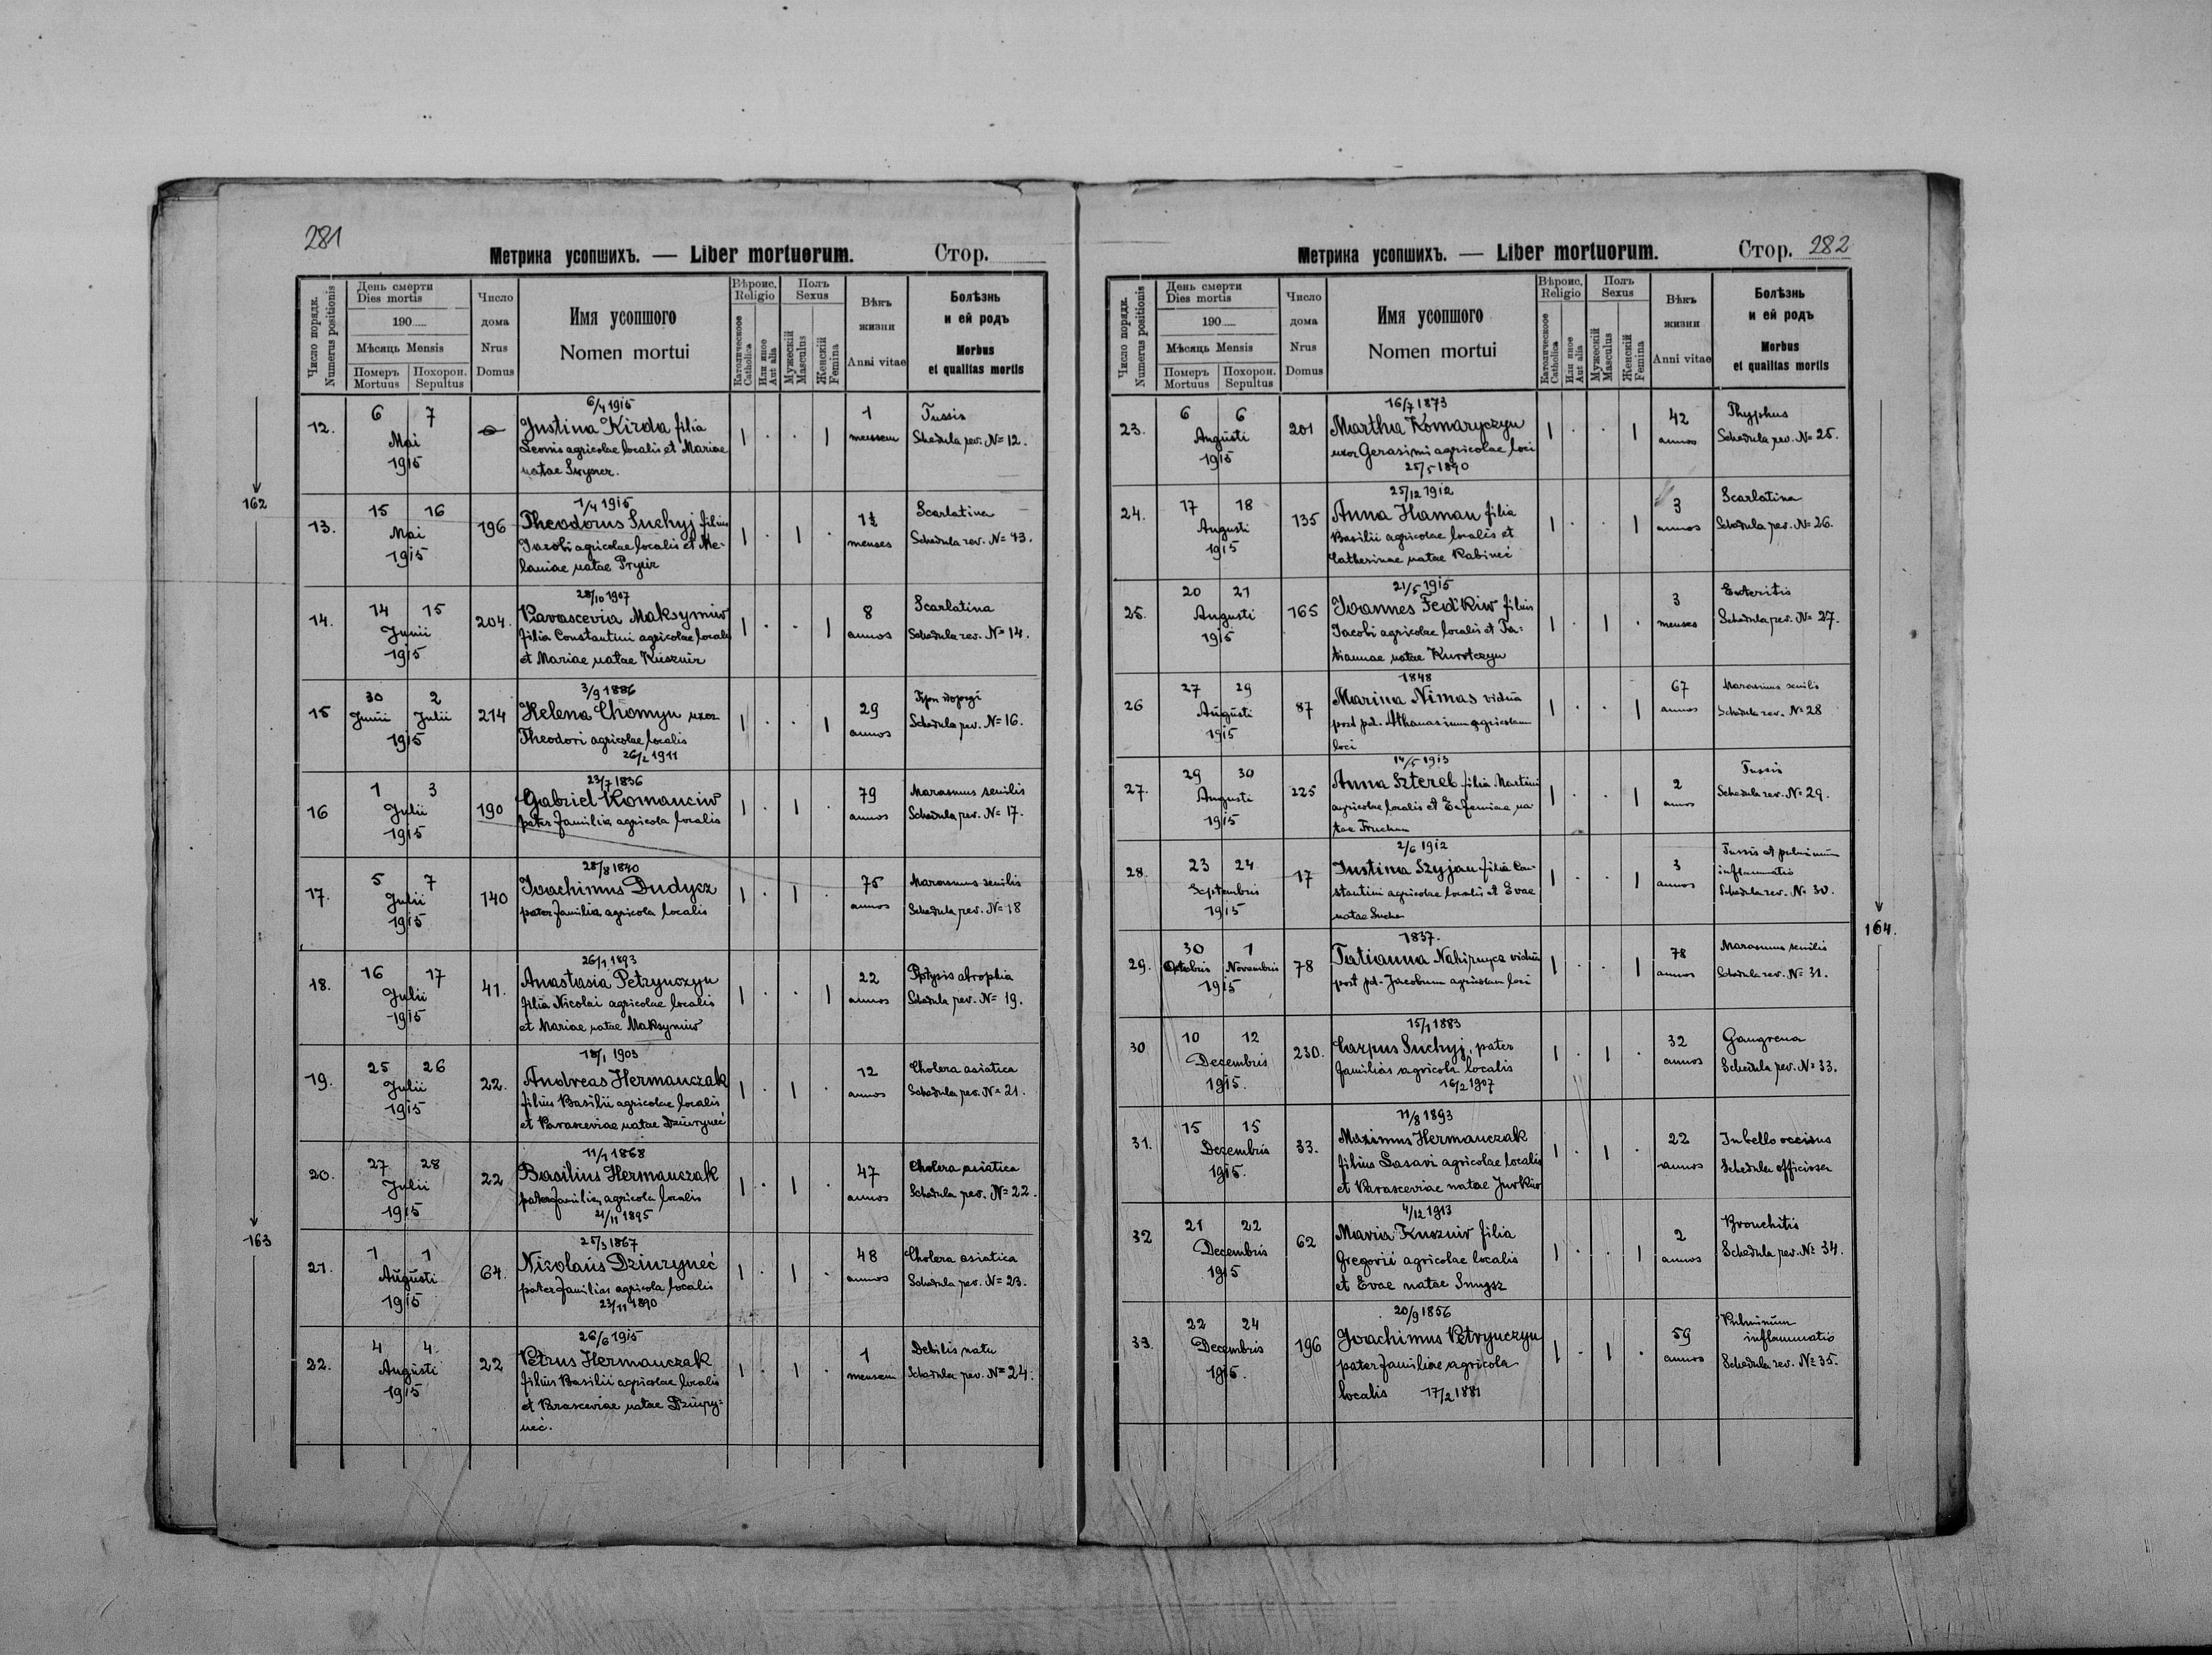 281
Метрика усопшихъ. — Liber mortuorum.
Стор.
Число порядк.
Numerus positionis
День смерти
Dies mortis
190
Мѣсяць Mensis
Померъ
Mortuus
Похорон.
Sepultus
Число
дома
Nrus
Domus
Имя усопшого
Nomen mortui
Вѣроис.
Religio
Католическое
Catholica
Или иное
Aut alia
Полъ
Sexus
Мужескій
Masculus
Женскій
Femina
Вѣкъ
жизни
Anni vitae
Болѣзнь
и ей родъ
Morbus
et qualitas mortis
12.
6 7
Mai
1915
6/4 1915
Justina Kirda filia
Leonis agricolae localis et Mariae
natae
1
mensem
Tussis
Schedula rev. № 12.
162
13.
15 16
Mai
1915
196
1/4 1915
Theodorus Suchyj filius
Jacobi agricolae localis et Me-
laniae natae Prycir
1½
menses
Scarlatina
Schedula rev. № 13.
14.
14 15
Junii
1915
204.
28/10 1907
Parascevia Maksymiw
filia Constantini agricolae localis
et Mariae natae Kusznir
8
annos
Scarlatina
Schedula rev. № 14.
15
30 2
Junii Julii
1915
214
3/9 1886
Helena Chomyn uxor
Theodori agricolae localis
26/2 1911
29
annos
Schedula rev. № 16.
16
1 3
Julii
1915
190
23/7 1836
Gabriel Romanciw
pater familias agricola localis
79
annos
Marasmus senilis
Schedula rev. № 17.
17.
5 7
Julii
1915
140
28/8 1840
Joachimus Dudycz
pater familias agricola localis
75
annos
Marasmus senilis
Schedula rev. № 18
18.
16 17
Julii
1915
41.
26/1 1893
Anastasia Petrynczyn
filia Nicolai agricolae localis
et Mariae natae Maksymiw
22
annos
Pptysis atrophia
Schedula rev. № 19.
19.
25 26
Julii
1915
22.
18/1 1903
Andreas Hermanczak
filius Basilii agricolae localis
et Parasceviae natae Dziuryneć
12
annos
Cholera asiatica
Schedula rev. № 21.
20.
27 28
Julii
1915
22
11/1 1868
Basilius Hermanczak
pater familias agricola localis
21/11 1895
47
annos
Cholera asiatica
Schedula rev. № 22.
163
21.
1 1
Augusti
1915
64.
25/3 1867
Nikolaus Dziuryneć
pater familias agricola localis
23/11 1890
48
annos
Cholera asiatica
Schedula rev. № 23.
22.
4 4
Augusti
1915
22
26/6 1915
Petrus Hermanczak
filius Basilii agricolae localis
et Parasceviae natae Dziury-
neć.
1
mensem
Debilis natu
Schedula rev. № 24.
Метрика усопшихъ. — Liber mortuorum.
Стор. 282
Число порядк.
Numerus positionis
День смерти
Dies mortis
190
Мѣсяць Mensis
Померъ
Mortuus
Похорон.
Sepultus
Число
дома
Nrus
Domus
Имя усопшого
Nomen mortui
Вѣроис.
Religio
Католическое
Catholica
Или иное
Aut alia
Полъ
Sexus
Мужескій
Masculus
Женскій
Femina
Вѣкъ
жизни
Anni vitae
Болѣзнь
и ей родъ
Morbus
et qualitas mortis
23.
6 6
Augusti
1915
201
16/7 1873
Martha Komaryczyn
uxor Gerasimi agricolae loci
25/5 1890
42
annos
Thyphus
Schedula rev. № 25.
24.
17 18
Augusti
1915
135
25/12 1912
Anna Haman filia
Basilii agricolae localis et
Catherinae natae Rabineć
3
annos
Scarlatina
Schedula rev. № 26.
25.
20 21
Augusti
1915
165
21/5 1915
Joannes Fedkiw filius
Jacobi agricolae localis et Ta-
tiannae natae
3
menses
Enteritis
Schedula rev. № 27.
26
27 29
Augusti
1915
87
1848
Marina Nimas vidua
post pd. Athanasium agricolam
loci
67
annos
Marasmus senilis
Schedula rev. № 28
27.
29 30
Augusti
1915
225
14/5 1913
Anna Sztereb filia Martini
agricolae localis et Eufemiae na-
tae
2
annos
Tussis
Schedula rev. № 29.
28.
23 24
Septembris
1915
17
2/6 1912
Justina Szyjan filia Con-
stantini agricolae localis et Evae
natae Sucha
3
annos
Tussis et pulminum
inflammatio
Schedula rev. № 30.
29.
30 1
Octobris Novembris
1915
78
1837.
Tatianna Nahirnyca vidua
post pd. Jacobum agricolam loci
78
annos
Marasmus senilis
Schedula rev. № 31.
164.
30
10 12
Decembris
1915.
230.
15/1 1883
Carpus Suchyj, pater
familias agricola localis
16/2 1907
32
annos
Gangrena
Schedula rev. № 33.
31.
15 15
Decembris
1915.
33.
11/8 1893
Maximus Hermanczak
filius Lasari agricolae localis
et Parasceviae natae Jurkiw
22
annos
In bello occisus
Schedula officiosa
32
21 22
Decembris
1915
62
4/12 1913
Maria Kusznir filia
Gregorii agricolae localis
et Evae natae Smysz
2
annos
Bronchitis
Schedula rev. № 34.
33.
22 24
Decembris
1915.
196
20/9 1856
Joachimus Petrynczyn
pater familiae agricola
localis 17/2 1881
59
annos
Pulminum
inflammatio
Schedula rev. № 35.